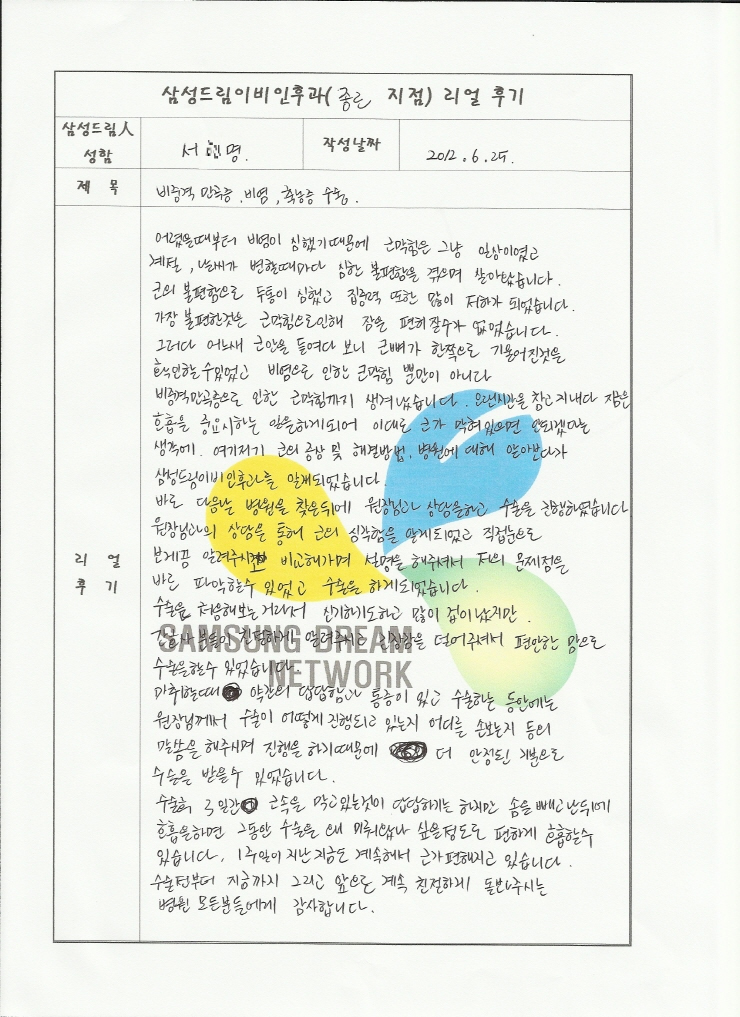 삼성드림이비인후과(종로 지점) 리얼 후기
삼성드림人 성함
서 명.
작성날짜
2012. 6. 25.
제 목
비중격 만곡증, 비염, 축농증 수술.
리 얼 후 기
어렸을때부터 비염이 심했기때문에 코막힘은 그냥 일상이였고
계절, 날씨가 변할때마다 심한 불편함을 겪으며 살아왔습니다.
코의 불편함으로 두통이 심했고 집중력 또한 많이 저하가 되었습니다.
가장 불편한것은 코막힘으로인해 잠을 편히잘수가 없었습니다.
그러다 어느새 코안을 들여다 보니 코뼈가 한쪽으로 기울어진것을
확인할수있었고 비염으로 인한 코막힘 뿐만이 아니라
비중격만곡증으로 인한 코막힘까지 생겨났습니다. 오랜시간을 참고지내다 지금은
호흡을 중요시하는 일을하게되어 이대로 코가 막혀있으면 안되겠다는
생각에. 여기저기 코의 증상 및 해결방법, 병원에 대해 알아보다가
삼성드림이비인후과를 알게되었습니다.
바로 다음날 병원을 찾은뒤에 원장님과 상담을하고 수술을 진행하였습니다
원장님과의 상담을 통해 코의 심각함을 알게되었고 직접눈으로
보게끔 알려주시고 비교해가며 설명을 해주셔서 저의 문제점을
바로 파악할수 있었고 수술을 하게되었습니다.
수술을 처음해보는거라서 신기하기도하고 많이 겁이났지만.
간호사 분들이 친절하게 알려주시고 긴장감을 덜어주셔서 편안한 맘으로
수술을할수 있었습니다.
마취할때 약간의 답답함과 통증이 있고 수술하는 동안에는
원장님께서 수술이 어떻게 진행되고 있는지 어디를 손보는지 등의
말씀을 해주시며 진행을 하기때문에 더 안정된 기분으로
수술을 받을수 있었습니다.
수술후 3일간 코속을 막고있는것이 답답하기는 하지만 솜을 빼고난뒤에
호흡을하면 그동안 수술을 왜 미뤄왔나 싶을정도로 편하게 호흡할수
있습니다. 1주일이 지난지금도 계속해서 코가편해지고 있습니다.
수술전부터 지금까지 그리고 앞으로 계속 친절하게 돌봐주시는
병원 모든분들에게 감사합니다.
SAMSUNG DREAM
NETWORK